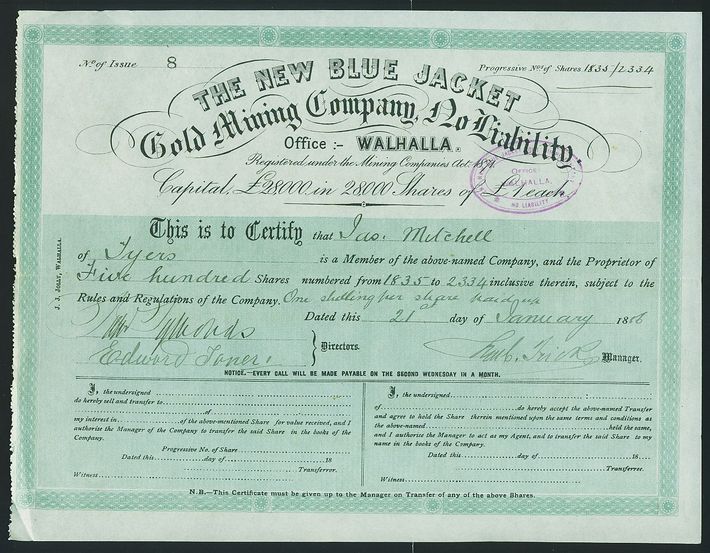 No. of Issue 8
Progressive Nos. of Shares 1835/2334
THE NEW BLUE JACKET
Gold Mining Company, No Liability.
Office :- WALHALLA.
Registered under the Mining Companies Act
Capital, £28000 in 28000 Shares of £1 each
OFFICE
WALHALLA
NO LIABILITY
This is to Certify that Jas. Mitchell
of Tyers is a Member of the above-named Company, and the Proprietor of
Five hundred Shares numbered from 1835 to 2334 inclusive therein, subject to the
Rules and Regulations of the Company. One shilling per share paid up
Dated this 21 day of January 1886
Edward
Directors.
Manager.
J. J. JOLLY, WALHALLA.
NOTICE.—EVERY CALL WILL BE MADE PAYABLE ON THE SECOND WEDNESDAY IN A MONTH.
I, the undersigned
do hereby sell and transfer to
of
my interest in of the above-mentioned Share for value received, and I
authorise the Manager of the Company to transfer the said Share in the books of the
Company.
Progressive No. of Share
Dated this day of 18
Transferror.
Witness
I, the undersigned
of do hereby accept the above-named Transfer
and agree to hold the Share therein mentioned upon the same terms and conditions as
the above-named held the same,
and I authorise the Manager to act as my Agent, and to transfer the said Share to my
name in the books of the Company.
Dated this day of 18
Transferree.
Witness
N.B.—This Certificate must be given up to the Manager on Transfer of any of the above Shares.